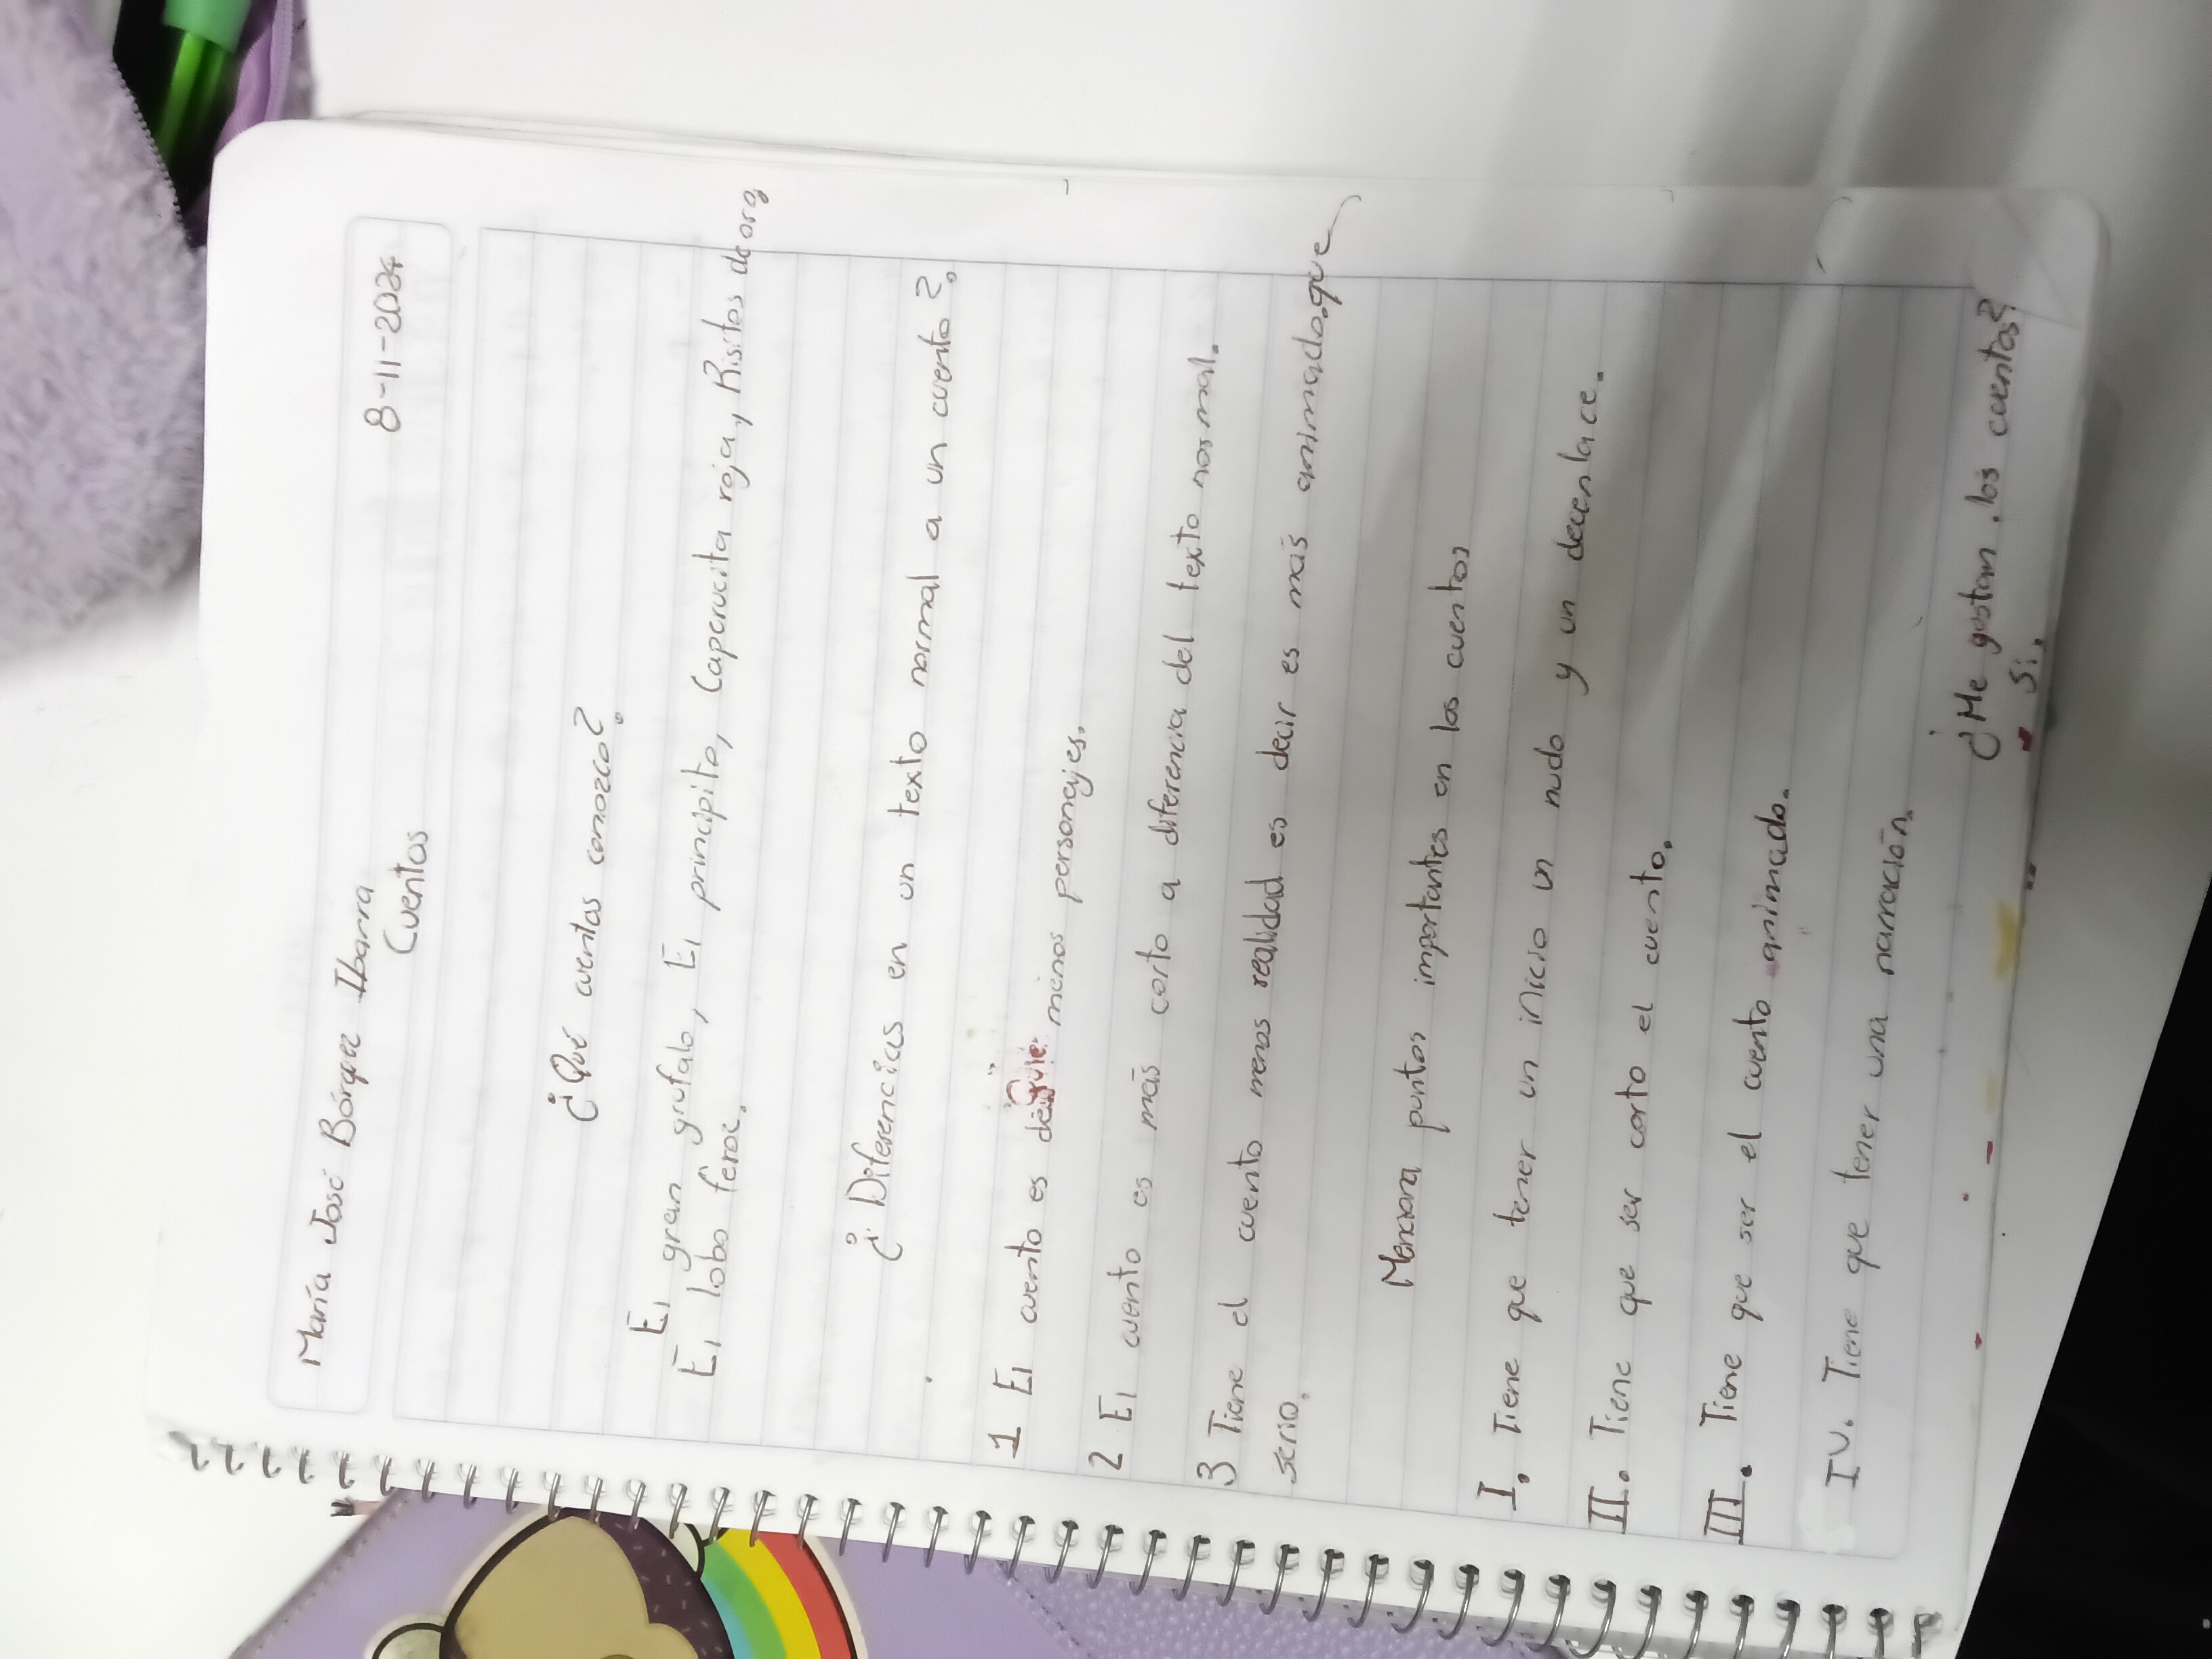 María José Bórquez Ibarra
Cuentos 8-11-2024
¿Qué cuentos conozco?
El gran grufalo, El principito, Caperucita roja, Risitos de oro,
El lobo feroz.
¿Diferencias en un texto normal a un cuento?
1 El cuento es de menos personajes.
2 El cuento es más corto a diferencia del texto normal.
3 Tiene el cuento menos realidad es decir es más animado.que
serio.
Menciona puntos importantes en los cuentos
I. Tiene que tener un inicio un nudo y un decenlace.
II. Tiene que ser corto el cuento.
III. Tiene que ser el cuento animado.
IV. Tiene que tener una narración.
¿Me gustan los cuentos?
Si.